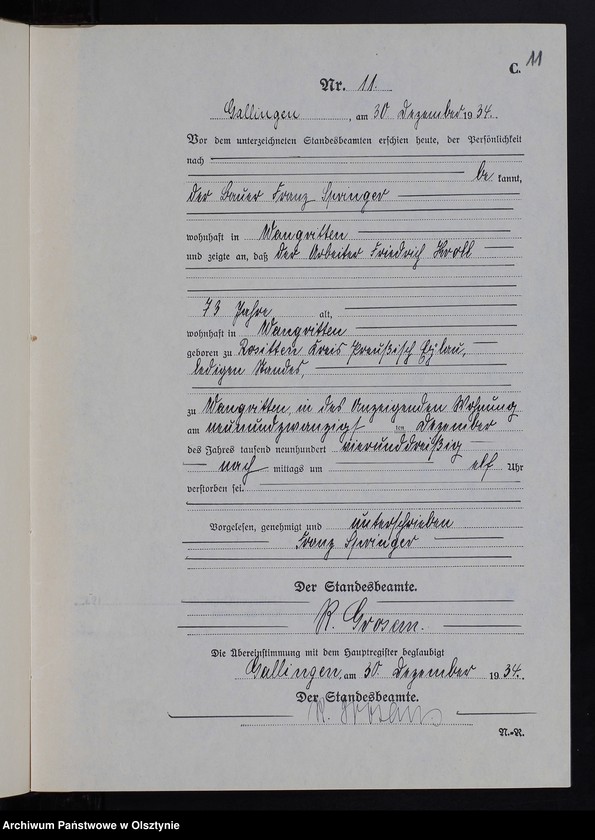 C. 11
Nr. 11.
Gallingen, am 30. Dezember 1934.
Vor dem unterzeichneten Standesbeamten erschien heute, der Persönlichkeit
nach
be kannt,
der Bauer Franz Springer
wohnhaft in Wangritten
und zeigte an, daß der Arbeiter Friedrich Kroll
73 Jahre alt,
wohnhaft in Wangritten
geboren zu Rositten Kreis Preußisch Eylau,
ledigen Standes,
zu Wangritten, in des Anzeigenden Wohnung
am neunundzwanzigsten Dezember
des Jahres tausend neunhundert vierunddreißig
nach mittags um elf Uhr
verstorben sei.
Vorgelesen, genehmigt und unterschrieben
Franz Springer
Der Standesbeamte.
R.
Die Übereinstimmung mit dem Hauptregister beglaubigt
Gallingen, am 30. Dezember 1934.
Der Standesbeamte.
R.
N.-R.
Archiwum Państwowe w Olsztynie